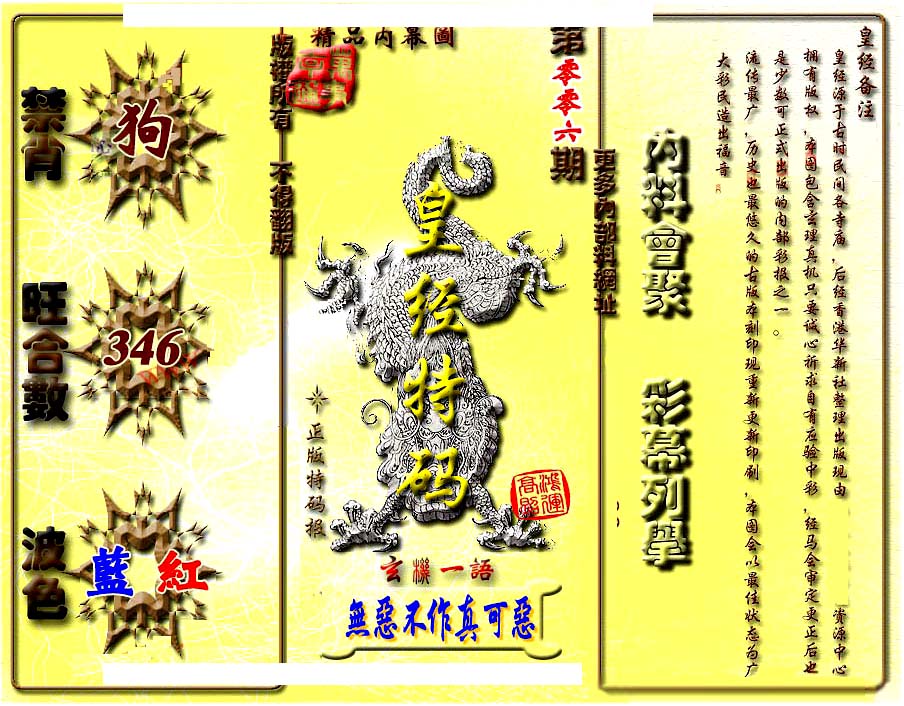 禁肖
狗
旺合數
346
波色
藍 紅
版權所有 不得翻版
精品内幕圖
第零零六期
皇经特码
正版特码报
鴻運高照
玄機一語
無惡不作真可惡
更多内部料網址
内料會聚 彩幕列舉
皇经备注
皇经源于古时民间各寺庙，后经香港华新社整理出版现由 資源中心
拥有版权，本图包含玄理真机只要诚心祈求自有应验中彩，经马会审定更正后也
是少数可正式出版的内部彩报之一。
流传最广，历史也最悠久的古版本刻印现重新更新印刷，本图会以最佳状态为广
大彩民造出福音